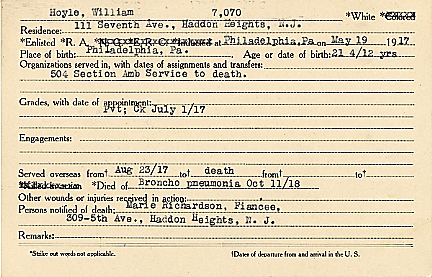 Hoyle, William 7,070 *White *Colored
Residence: 111 Seventh Ave., Haddon Heights, N.J.
*Enlisted *R.A. *N.G. *E.R.C. *Inducted at Philadelphia, Pa on May 19 1917
Place of birth: Philadelphia, Pa. Age or date of birth: 21 4/12 yrs
Organizations served in, with dates of assignments and transfers:
504 Section Amb Service to death.
Grades, with date of appointment:
Pvt; Ck July 1/17
Engagements:
Served overseas from† Aug 23/17 to† death from† to†
*Killed in action *Died of Broncho pneumonia Oct 11/18
Other wounds or injuries received in action:
Persons notified of death: Marie Richardson, Fiancee,
309-5th Ave., Haddon Heights, N. J.
Remarks:
*Strike out words not applicable. †Dates of departure from and arrival in the U. S.